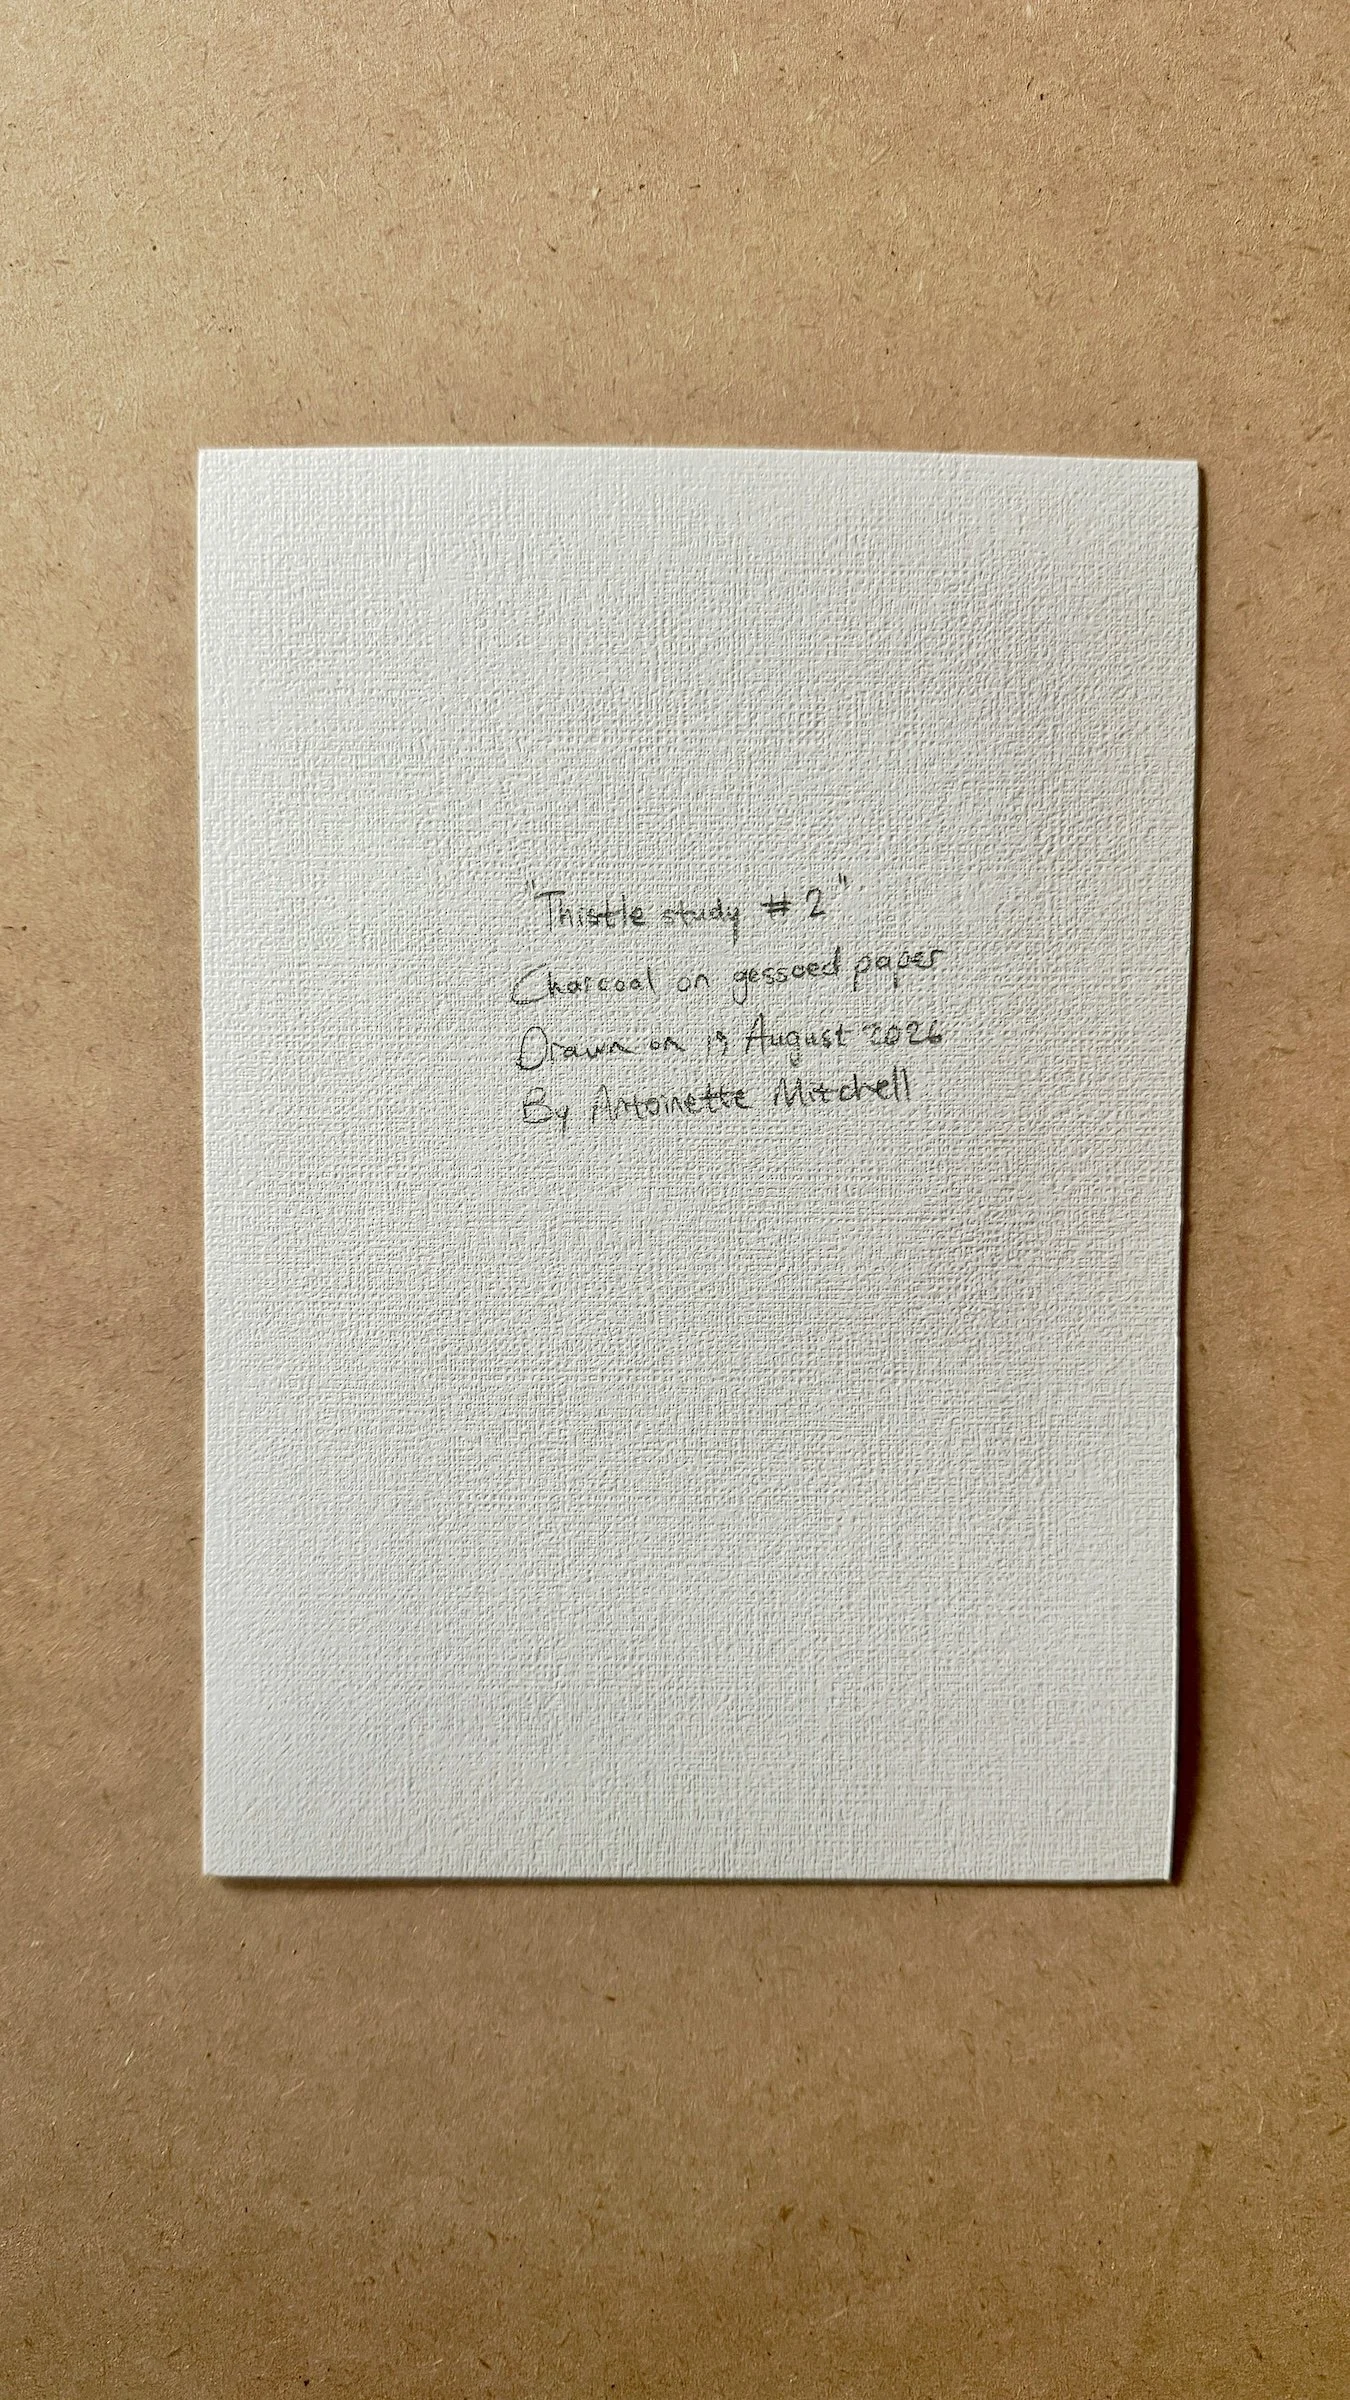 "Thistle study #2"
Charcoal on gessoed paper
Drawn on 19 August 2026
By Antoinette Mitchell